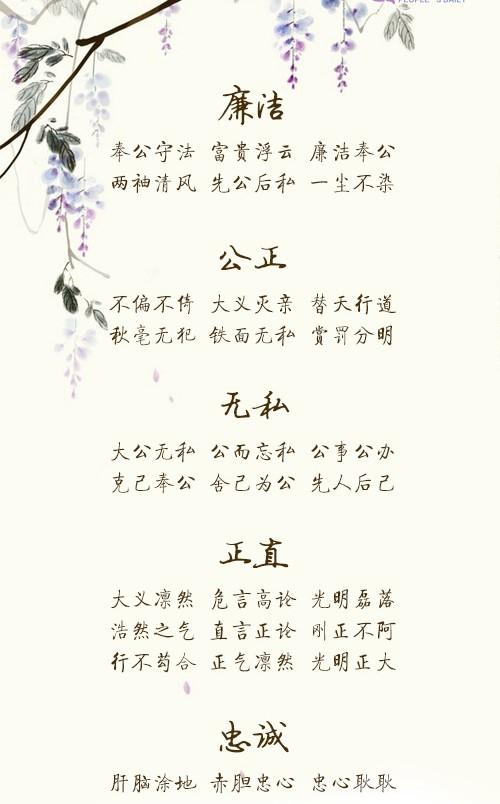 PEOPLE'S DAILY
廉洁
奉公守法 富贵浮云 廉洁奉公
两袖清风 先公后私 一尘不染
公正
不偏不倚 大义灭亲 替天行道
秋毫无犯 铁面无私 赏罚分明
无私
大公无私 公而忘私 公事公办
克己奉公 舍己为公 先人后己
正直
大义凛然 危言高论 光明磊落
浩然之气 直言正论 刚正不阿
行不苟合 正气凛然 光明正大
忠诚
肝脑涂地 赤胆忠心 忠心耿耿